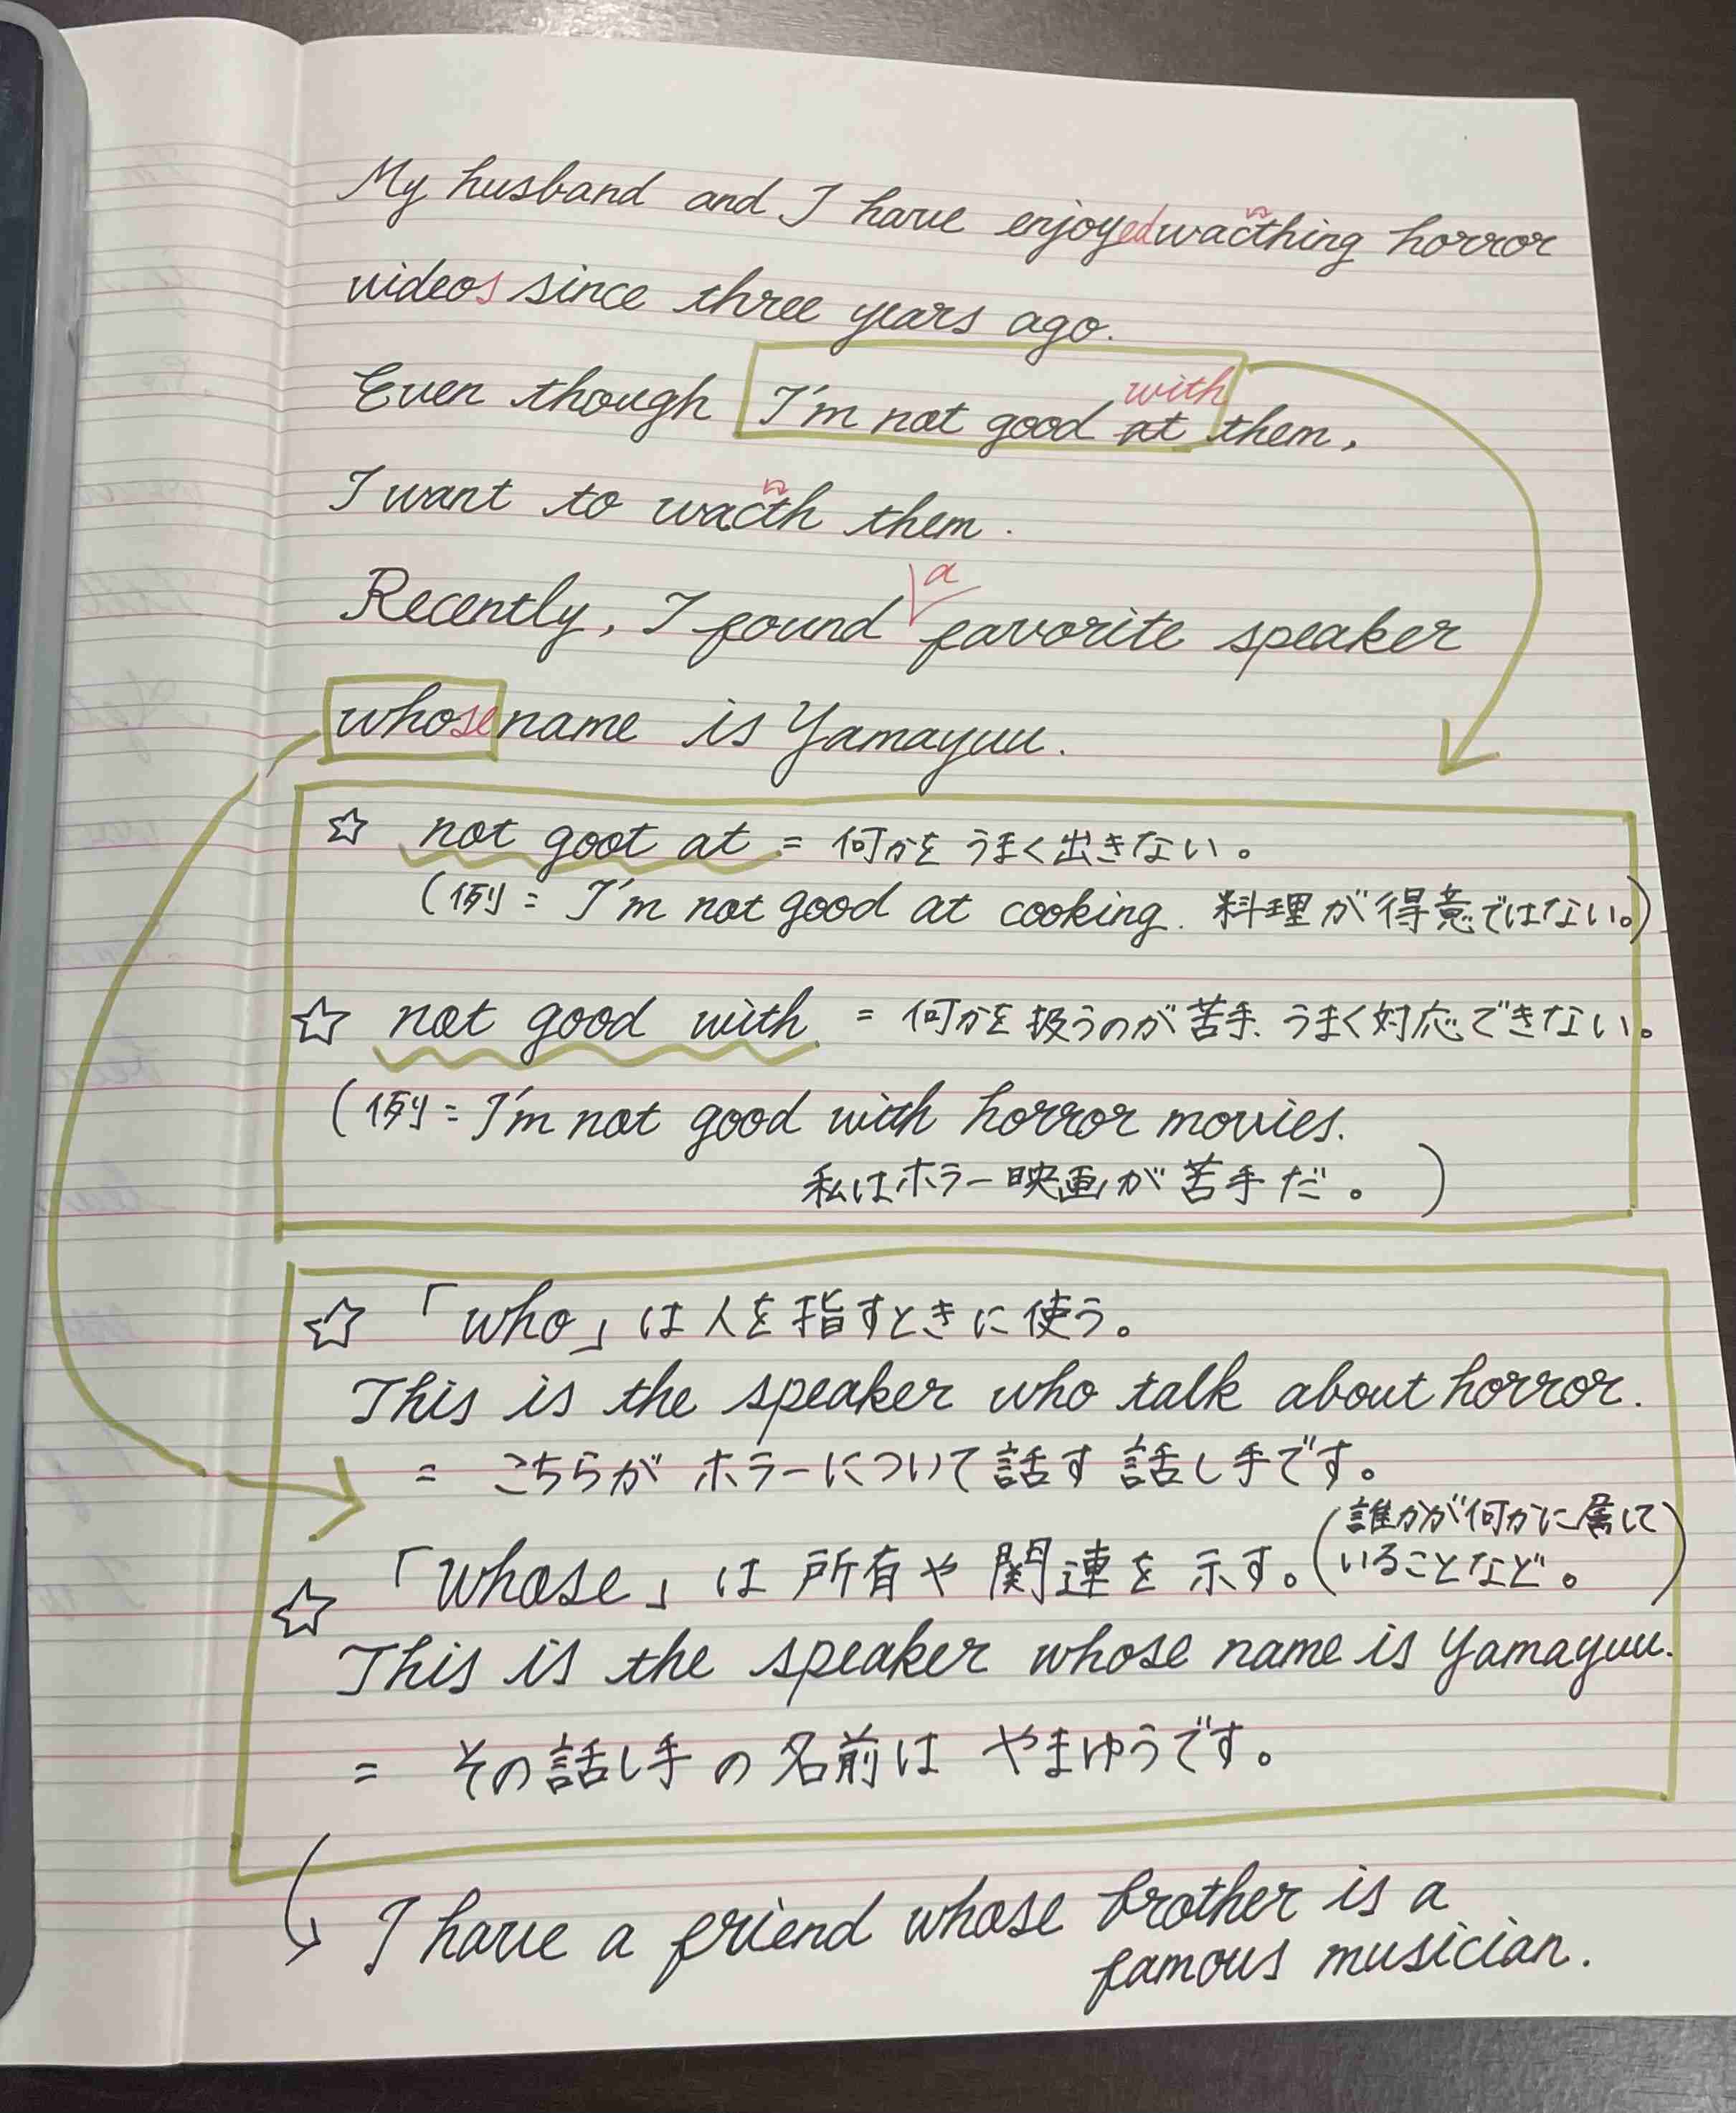 My husband and I have enjoyed wacthing horror
videos since three years ago.
with
Even though I'm not good at them,
I want to wacth them.
a
Recently, I found favorite speaker
whose name is Yamayuu.
☆ not goot at = 何かをうまく出きない。
(例: I'm not good at cooking. 料理が得意ではない。)
☆ not good with = 何かを扱うのが苦手、うまく対応できない。
(例: I'm not good with horror movies.
私はホラー映画が苦手だ。)
☆ 「who」は人を指すときに使う。
This is the speaker who talk about horror.
= こちらがホラーについて話す話し手です。
☆ 「whose」は所有や関連を示す。(誰かが何かに属して
いることなど。)
This is the speaker whose name is Yamayuu.
= その話し手の名前はやまゆうです。
I have a friend whose brother is a
famous musician.